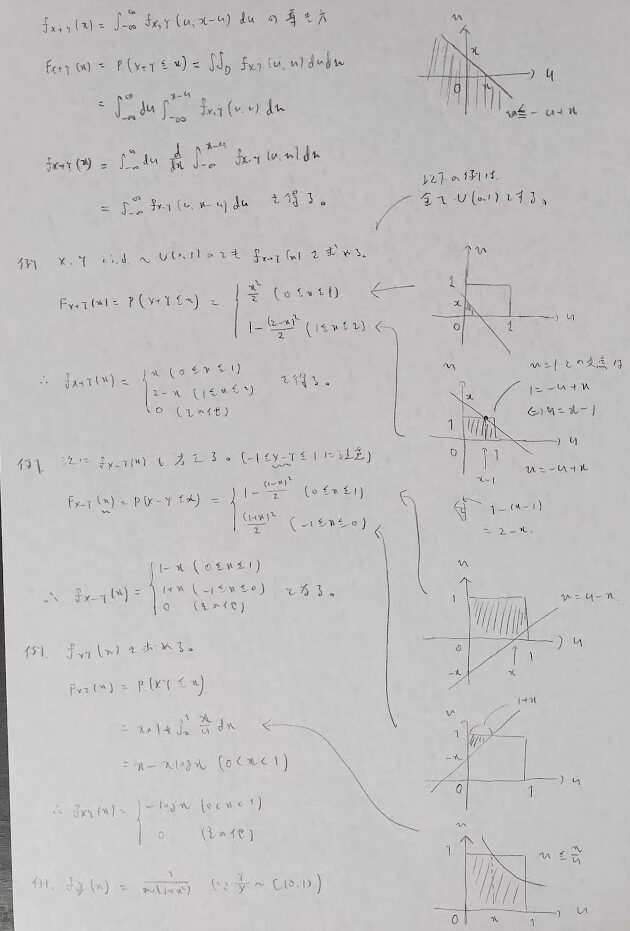 f_{X+Y}(x) = ∫_{-∞}^{∞} f_{X,Y}(u, x-u) du の導出
F_{X+Y}(x) = P(X+Y ≦ x) = ∬_D f_{X,Y}(u, v) du dv
= ∫_{-∞}^{∞} du ∫_{-∞}^{x-u} f_{X,Y}(u, v) dv
f_{X+Y}(x) = ∫_{-∞}^{∞} du d/dx ∫_{-∞}^{x-u} f_{X,Y}(u, v) dv
= ∫_{-∞}^{∞} f_{X,Y}(u, x-u) du を得る。
v
x
0 x u
v ≦ -u+x
以下の例は
全て U(0,1) とする。
例. X, Y i.i.d. ~ U(0,1) のとき f_{X+Y}(x) を求める。
F_{X+Y}(x) = P(X+Y ≦ x) = { x²/2 (0≦x≦1)
1 - (2-x)²/2 (1≦x≦2)
∴ f_{X+Y}(x) = { x (0≦x≦1)
2-x (1≦x≦2) を得る。
0 (その他)
v
1
x
0 1 u
v
x
1
0 1 u
x-1
v = -u+x
v=1 との交点は
1 = -u+x
⇔ u = x-1
1-(x-1)
= 2-x.
例. 次に f_{X-Y}(x) を考える。(-1≦X-Y≦1 に注意)
F_{X-Y}(x) = P(X-Y ≦ x) = { 1 - (1-x)²/2 (0≦x≦1)
(1+x)²/2 (-1≦x≦0)
∴ f_{X-Y}(x) = { 1-x (0≦x≦1)
1+x (-1≦x≦0) となる。
0 (その他)
v
1
v = u-x
0 x 1 u
-x
v
1+x
1
-x
0 1 u
例. f_{XY}(x) を求める。
F_{XY}(x) = P(XY ≦ x)
= x·1 + ∫_x^1 x/u du
= x - x log x (0<x<1)
∴ f_{XY}(x) = { -log x (0<x<1)
0 (その他)
v
1
v ≦ x/u
0 x 1 u
例. f_{Y/X}(x) = 1/(π(1+x²)) (∵ Y/X ~ C(0,1))